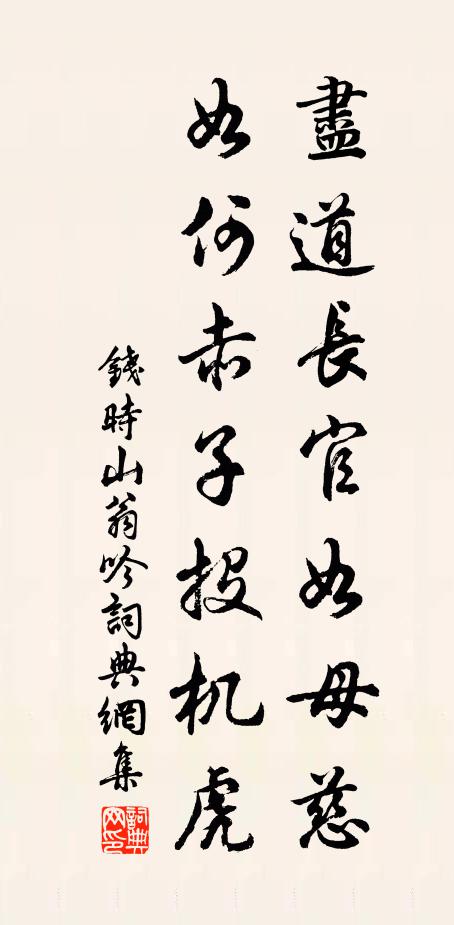 盡道長官如母慈
如何赤子投机虎
錢時山翁吟詞典網集
詞典
网印